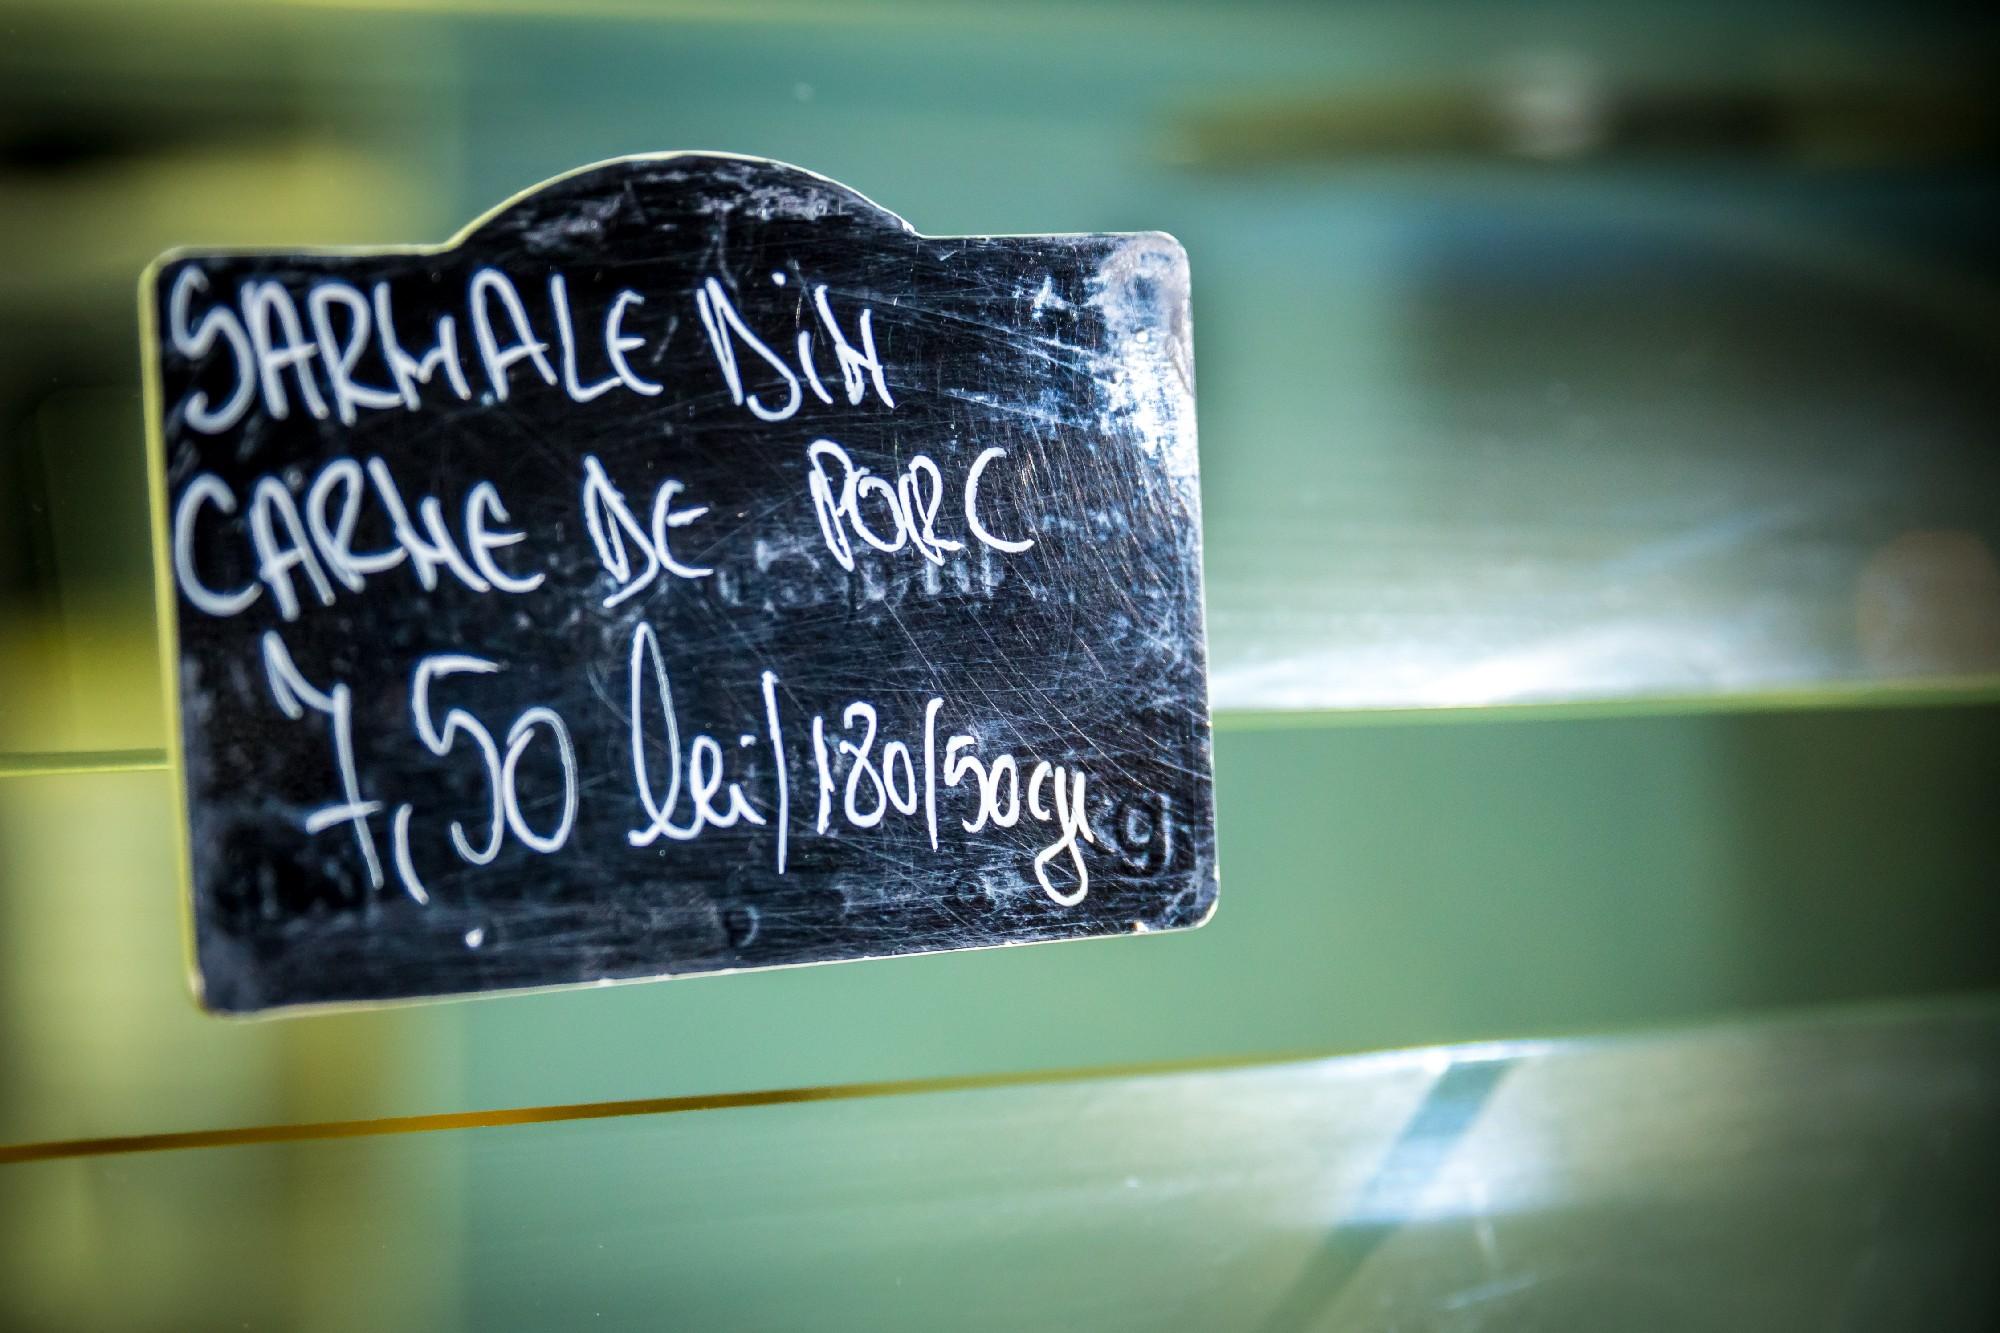 SARMALE DiN
CARNE DE PORC
7,50 lei/180/50gr